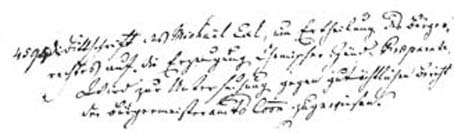 Bittschrift des Michael Exl, um Ertheilung des Bürger-
rechtes auf die Erzeugung chemischer Zünd-Präparate.
Wird zur Untersuchung gegen gutächtlichen Bericht
der Bürgermeisteramts zugewiesen.